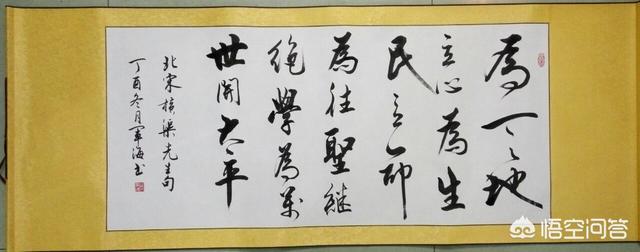 為天地
立心為生
民立命
為往聖継
絶學為萬
世開太平
北宋横渠先生句
丁酉冬月軍海书
悟空问答